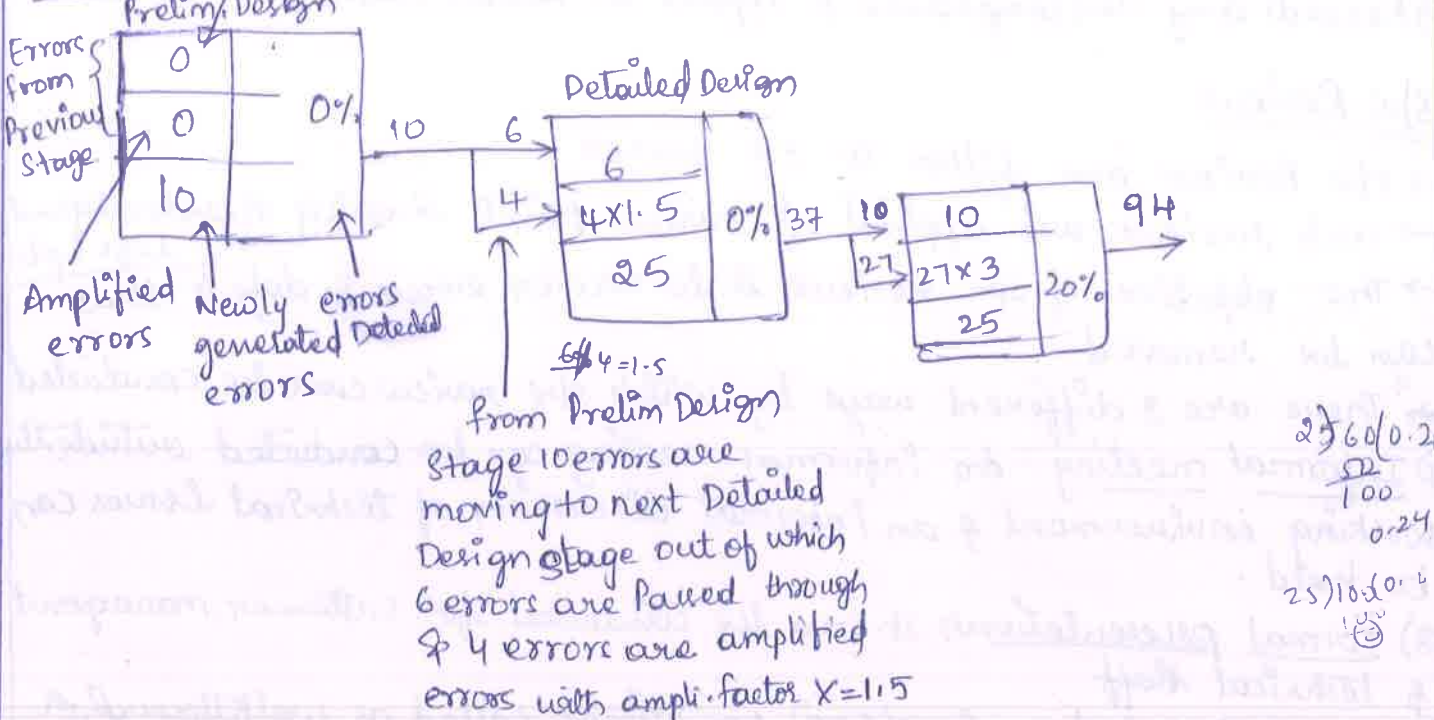 Prelim. Design
Errors
from
Previous
Stage
0
0
10
0%
Amplified
errors
Newly
generated
errors
errors
Deteded
10
6
4
Detailed Design
6
4X1.5
25
0%
37
10
27
10
27X3
25
20%
94
4=1.5
from Prelim Design
Stage 10 errors are
moving to next Detailed
Design stage out of which
6 errors are Passed through
& 4 errors are amplified
errors with ampli. factor X=1.5
100
0.24